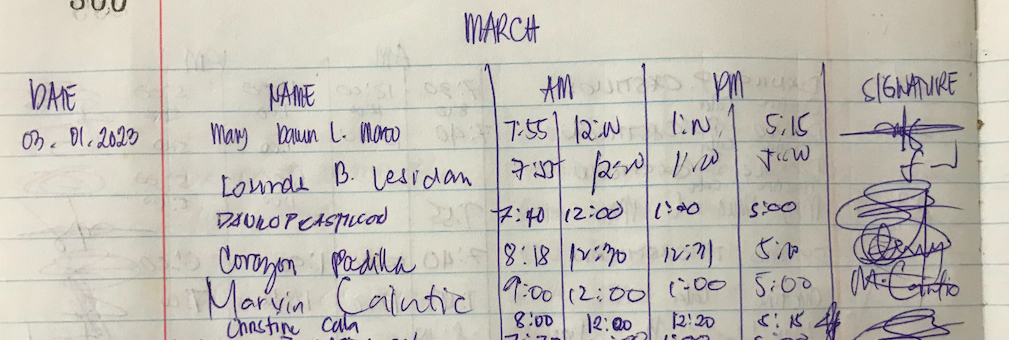 500
MARCH
DATE NAME AM PM SIGNATURE
03.01.2023 Mary Dawn L. 7:55 12:00 1:00 5:15
Lourdes B. Lesidan 7:55 12:00 1:00
7:40 12:00 1:00 5:00
Corazon Padilla 8:18 12:30 12:31 5:10
Marvin Caintic 9:00 12:00 1:00 5:00 M. Caintic
Christine Cala 8:00 12:00 12:20 5:15